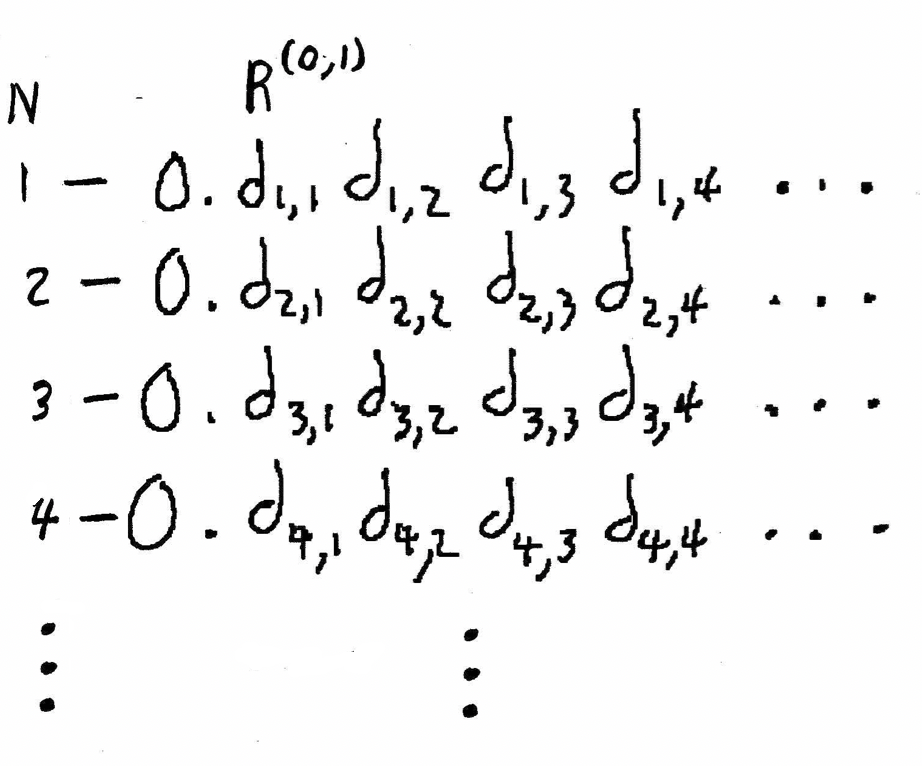 N R^(0,1)
1 — 0.d_1,1 d_1,2 d_1,3 d_1,4 ...
2 — 0.d_2,1 d_2,2 d_2,3 d_2,4 ...
3 — 0.d_3,1 d_3,2 d_3,3 d_3,4 ...
4 — 0.d_4,1 d_4,2 d_4,3 d_4,4 ...
⋮ ⋮